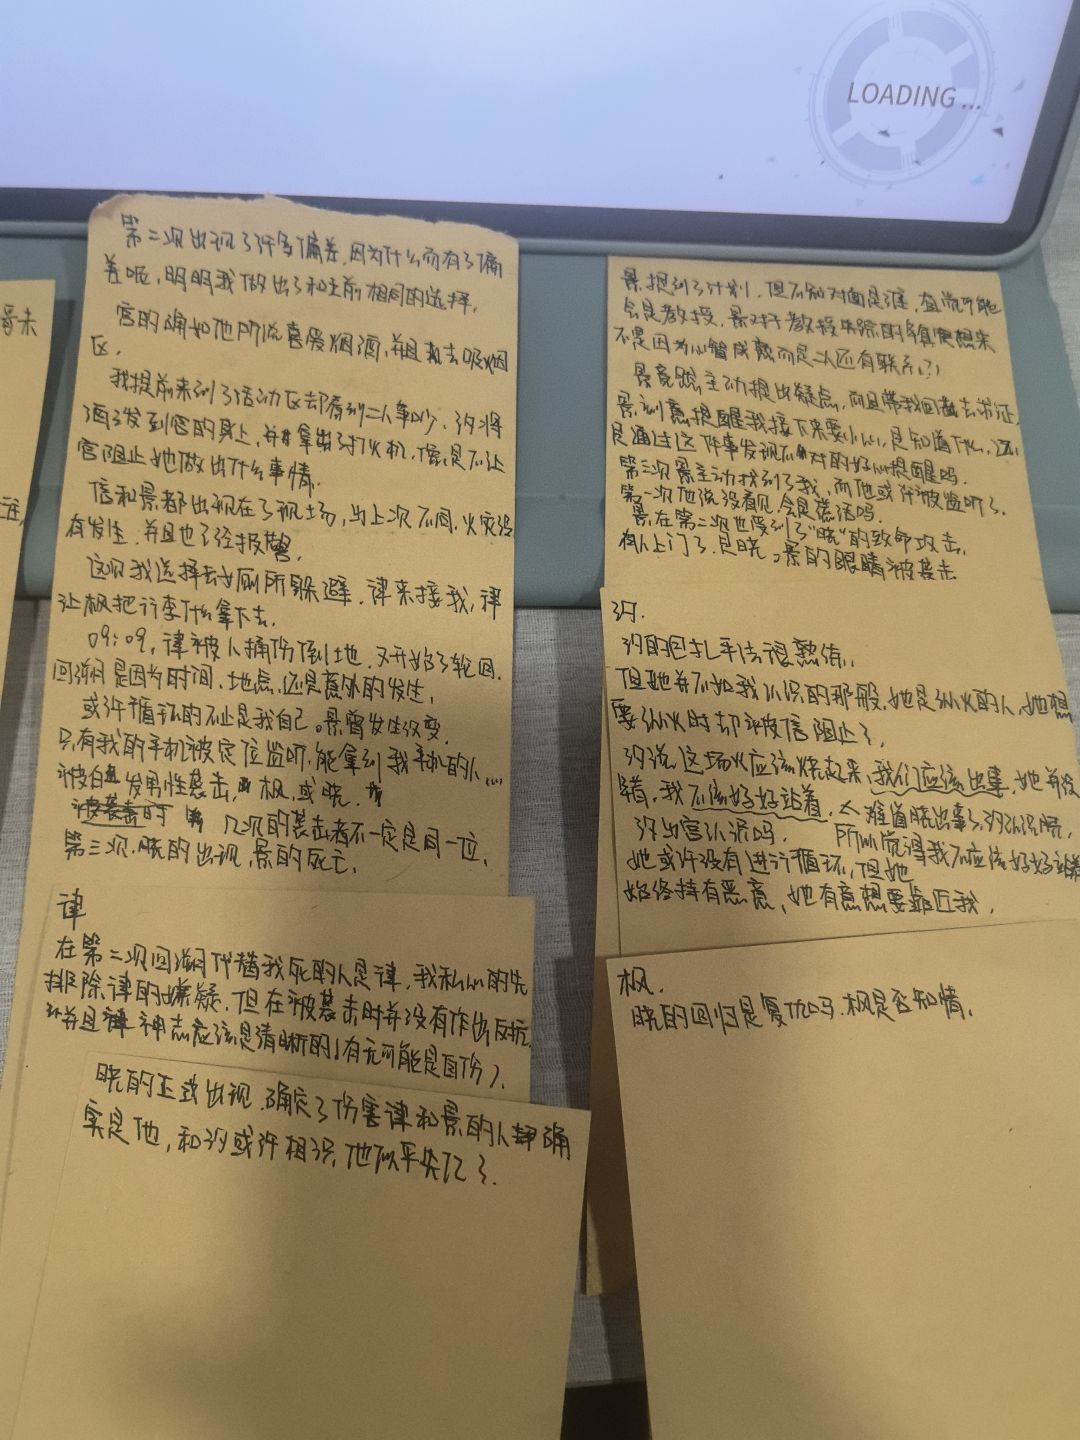 LOADING...
哥未
第二次出现了许多偏差,因为什么而有了偏
差呢,明明我做出了和之前相同的选择,
宫的确如他所说喜爱烟酒,并且我去吸烟
区.
我提前来到了活动区却看到二人争吵,汐将
酒发到宫的身上,并拿出了打火机,像是不让
宫阻止她做出什么事情.
信和景都出现在了现场,与上次不同,火灾没
有发生,并且也已经报警.
这次我选择去女厕所躲避,律来接我,律
让枫把行李什么拿下去.
09:09,律被人捅伤倒地,又开始了轮回.
回溯是因为时间、地点,还是意外的发生,
或许循环的不止是我自己。景曾发生改变.
只有我的手机被定位监听,能拿到我手机的人...
被白 发男性袭击, 枫,或晓.
被袭击的 几次的袭击者不一定是同一位,
第三次,晓的出现,景的死亡.
律
在第二次回溯代替我死的人是律,我私心的先
排除律的嫌疑,但在被袭击时并没有作出反抗,
并且律神志应该是清晰的!(有无可能是自伤).
晓的正式出现,确定了伤害律和景的人却确
实是他,和汐或许相识,他似乎失忆了.
景提到了计划,但不知对面是谁,
会是教授,景对于教授失踪的 想来
不是因为心智成熟而是二人还有联系(?)
景竟然主动提出疑点,而且带我回 去 证,
景刻意提醒我接下来要小心,是知道什么,还
是通过这件事发现不对的好心提醒吗.
第三次景主动找到了我,而他或许被监听了.
第一次他说没看见,会是谎话吗.
景在第二次也受到了“晓”的致命攻击,
有人上门了,是晓,景的眼睛被袭击
汐.
汐的包扎手法很熟练,
但她并不如我认识的那般,她是纵火的人,她想
要纵火时却被信阻止了,
汐说,这场火应该烧起来,我们应该出事,她并没
猜,我不该好好站着,难道晓出事了,汐认识晓,
汐出宫认识吗. 所以觉得我不应该好好站着
她或许没有进行循环,但她
始终持有恶意,她有意想要靠近我,
枫.
晓的回归是复仇吗.枫是否知情,